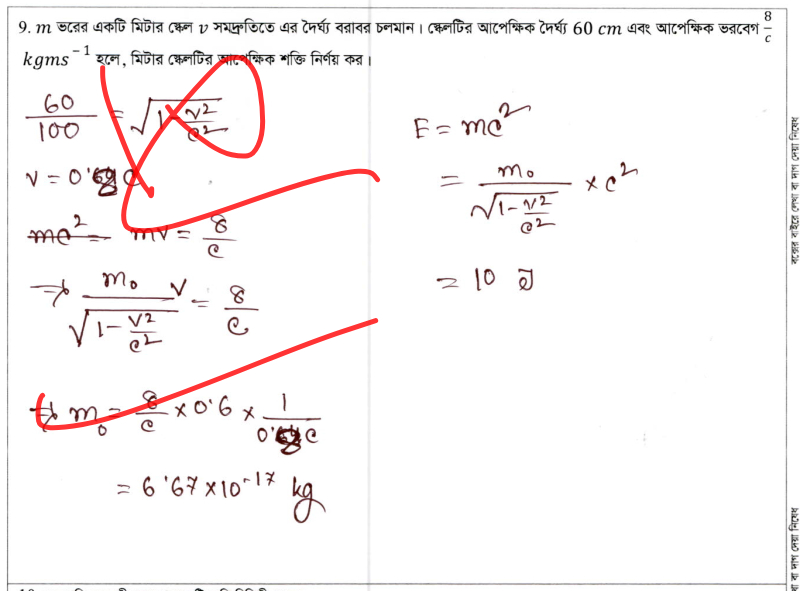 9. m ভরের একটি মিটার স্কেল v সমদ্রুতিতে এর দৈর্ঘ্য বরাবর চলমান। স্কেলটির আপেক্ষিক দৈর্ঘ্য 60 cm এবং আপেক্ষিক ভরবেগ 8/c
kgms⁻¹ হলে, মিটার স্কেলটির আপেক্ষিক শক্তি নির্ণয় কর।
60/100 = √(1 - v²/c²)
v = 0.8 c
mc² = mv = 8/c
⇒ m₀/√(1 - v²/c²) v = 8/c
⇒ m₀ = 8/c × 0.6 × 1/0.8c
= 6.67 × 10⁻¹⁷ kg
E = mc²
= m₀/√(1 - v²/c²) × c²
= 10 J
বক্সের বাইরে লেখা বা দাগ দেয়া নিষেধ
খা বা দাগ দেয়া নিষেধ